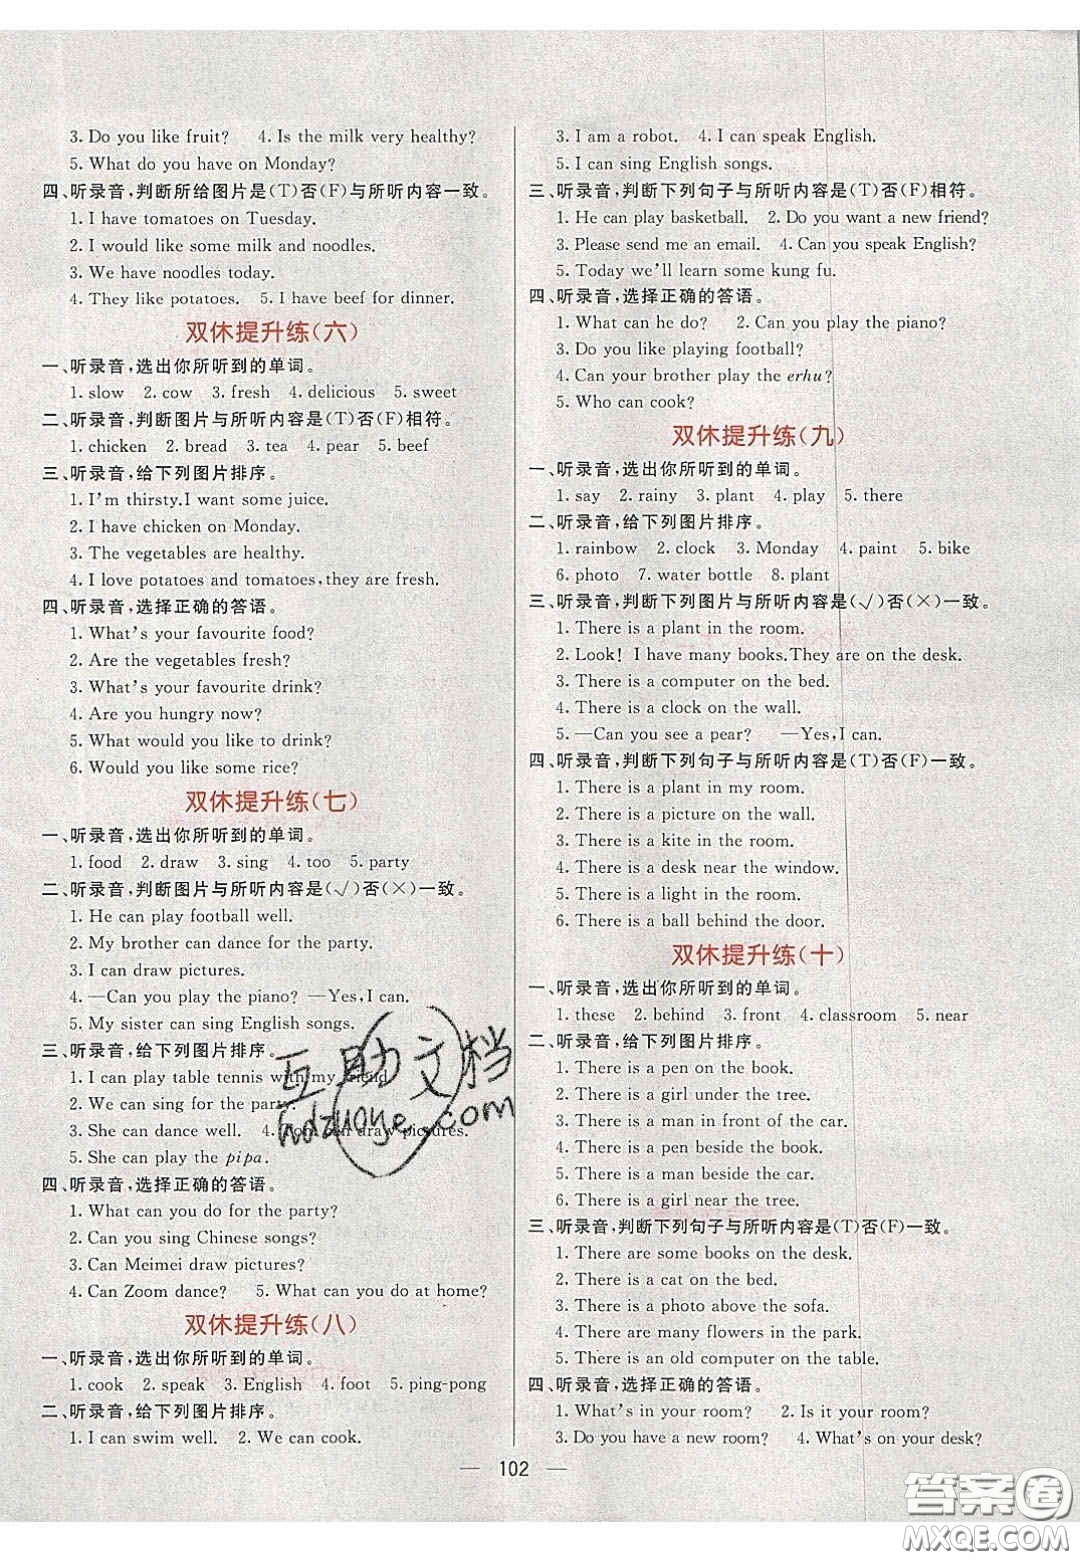 3. Do you like fruit? 4. Is the milk very healthy?
5. What do you have on Monday?
四、听录音,判断所给图片是(T)否(F)与所听内容一致。
1. I have tomatoes on Tuesday.
2. I would like some milk and noodles.
3. We have noodles today.
4. They like potatoes. 5. I have beef for dinner.
双休提升练(六)
一、听录音,选出你所听到的单词。
1. slow 2. cow 3. fresh 4. delicious 5. sweet
二、听录音,判断图片与所听内容是(T)否(F)相符。
1. chicken 2. bread 3. tea 4. pear 5. beef
三、听录音,给下列图片排序。
1. I'm thirsty. I want some juice.
2. I have chicken on Monday.
3. The vegetables are healthy.
4. I love potatoes and tomatoes, they are fresh.
四、听录音,选择正确的答语。
1. What's your favourite food?
2. Are the vegetables fresh?
3. What's your favourite drink?
4. Are you hungry now?
5. What would you like to drink?
6. Would you like some rice?
双休提升练(七)
一、听录音,选出你所听到的单词。
1. food 2. draw 3. sing 4. too 5. party
二、听录音,判断图片与所听内容是(√)否(×)一致。
1. He can play football well.
2. My brother can dance for the party.
3. I can draw pictures.
4. —Can you play the piano? —Yes, I can.
5. My sister can sing English songs.
三、听录音,给下列图片排序。
1. I can play table tennis with my friend.
2. We can sing for the party.
3. She can dance well. 4. Mom can draw pictures.
5. She can play the pipa.
四、听录音,选择正确的答语。
1. What can you do for the party?
2. Can you sing Chinese songs?
3. Can Meimei draw pictures?
4. Can Zoom dance? 5. What can you do at home?
双休提升练(八)
一、听录音,选出你所听到的单词。
1. cook 2. speak 3. English 4. foot 5. ping-pong
二、听录音,给下列图片排序。
1. I can swim well. 2. We can cook.
3. I am a robot. 4. I can speak English.
5. I can sing English songs.
三、听录音,判断下列句子与所听内容是(T)否(F)相符。
1. He can play basketball. 2. Do you want a new friend?
3. Please send me an email. 4. Can you speak English?
5. Today we'll learn some kung fu.
四、听录音,选择正确的答语。
1. What can he do? 2. Can you play the piano?
3. Do you like playing football?
4. Can your brother play the erhu?
5. Who can cook?
双休提升练(九)
一、听录音,选出你所听到的单词。
1. say 2. rainy 3. plant 4. play 5. there
二、听录音,给下列图片排序。
1. rainbow 2. clock 3. Monday 4. paint 5. bike
6. photo 7. water bottle 8. plant
三、听录音,判断下列图片与所听内容是(√)否(×)一致。
1. There is a plant in the room.
2. Look! I have many books. They are on the desk.
3. There is a computer on the bed.
4. There is a clock on the wall.
5. —Can you see a pear? —Yes, I can.
四、听录音,判断下列句子与所听内容是(T)否(F)一致。
1. There is a plant in my room.
2. There is a picture on the wall.
3. There is a kite in the room.
4. There is a desk near the window.
5. There is a light in the room.
6. There is a ball behind the door.
双休提升练(十)
一、听录音,选出你所听到的单词。
1. these 2. behind 3. front 4. classroom 5. near
二、听录音,给下列图片排序。
1. There is a pen on the book.
2. There is a girl under the tree.
3. There is a man in front of the car.
4. There is a pen beside the book.
5. There is a man beside the car.
6. There is a girl near the tree.
三、听录音,判断下列句子与所听内容是(T)否(F)一致。
1. There are some books on the desk.
2. There is a cat on the bed.
3. There is a photo above the sofa.
4. There are many flowers in the park.
5. There is an old computer on the table.
四、听录音,选择正确的答语。
1. What's in your room? 2. Is it your room?
3. Do you have a new room? 4. What's on your desk?
— 102 —
互助文档
hdzuoye.com
答案圈
MXQE.COM